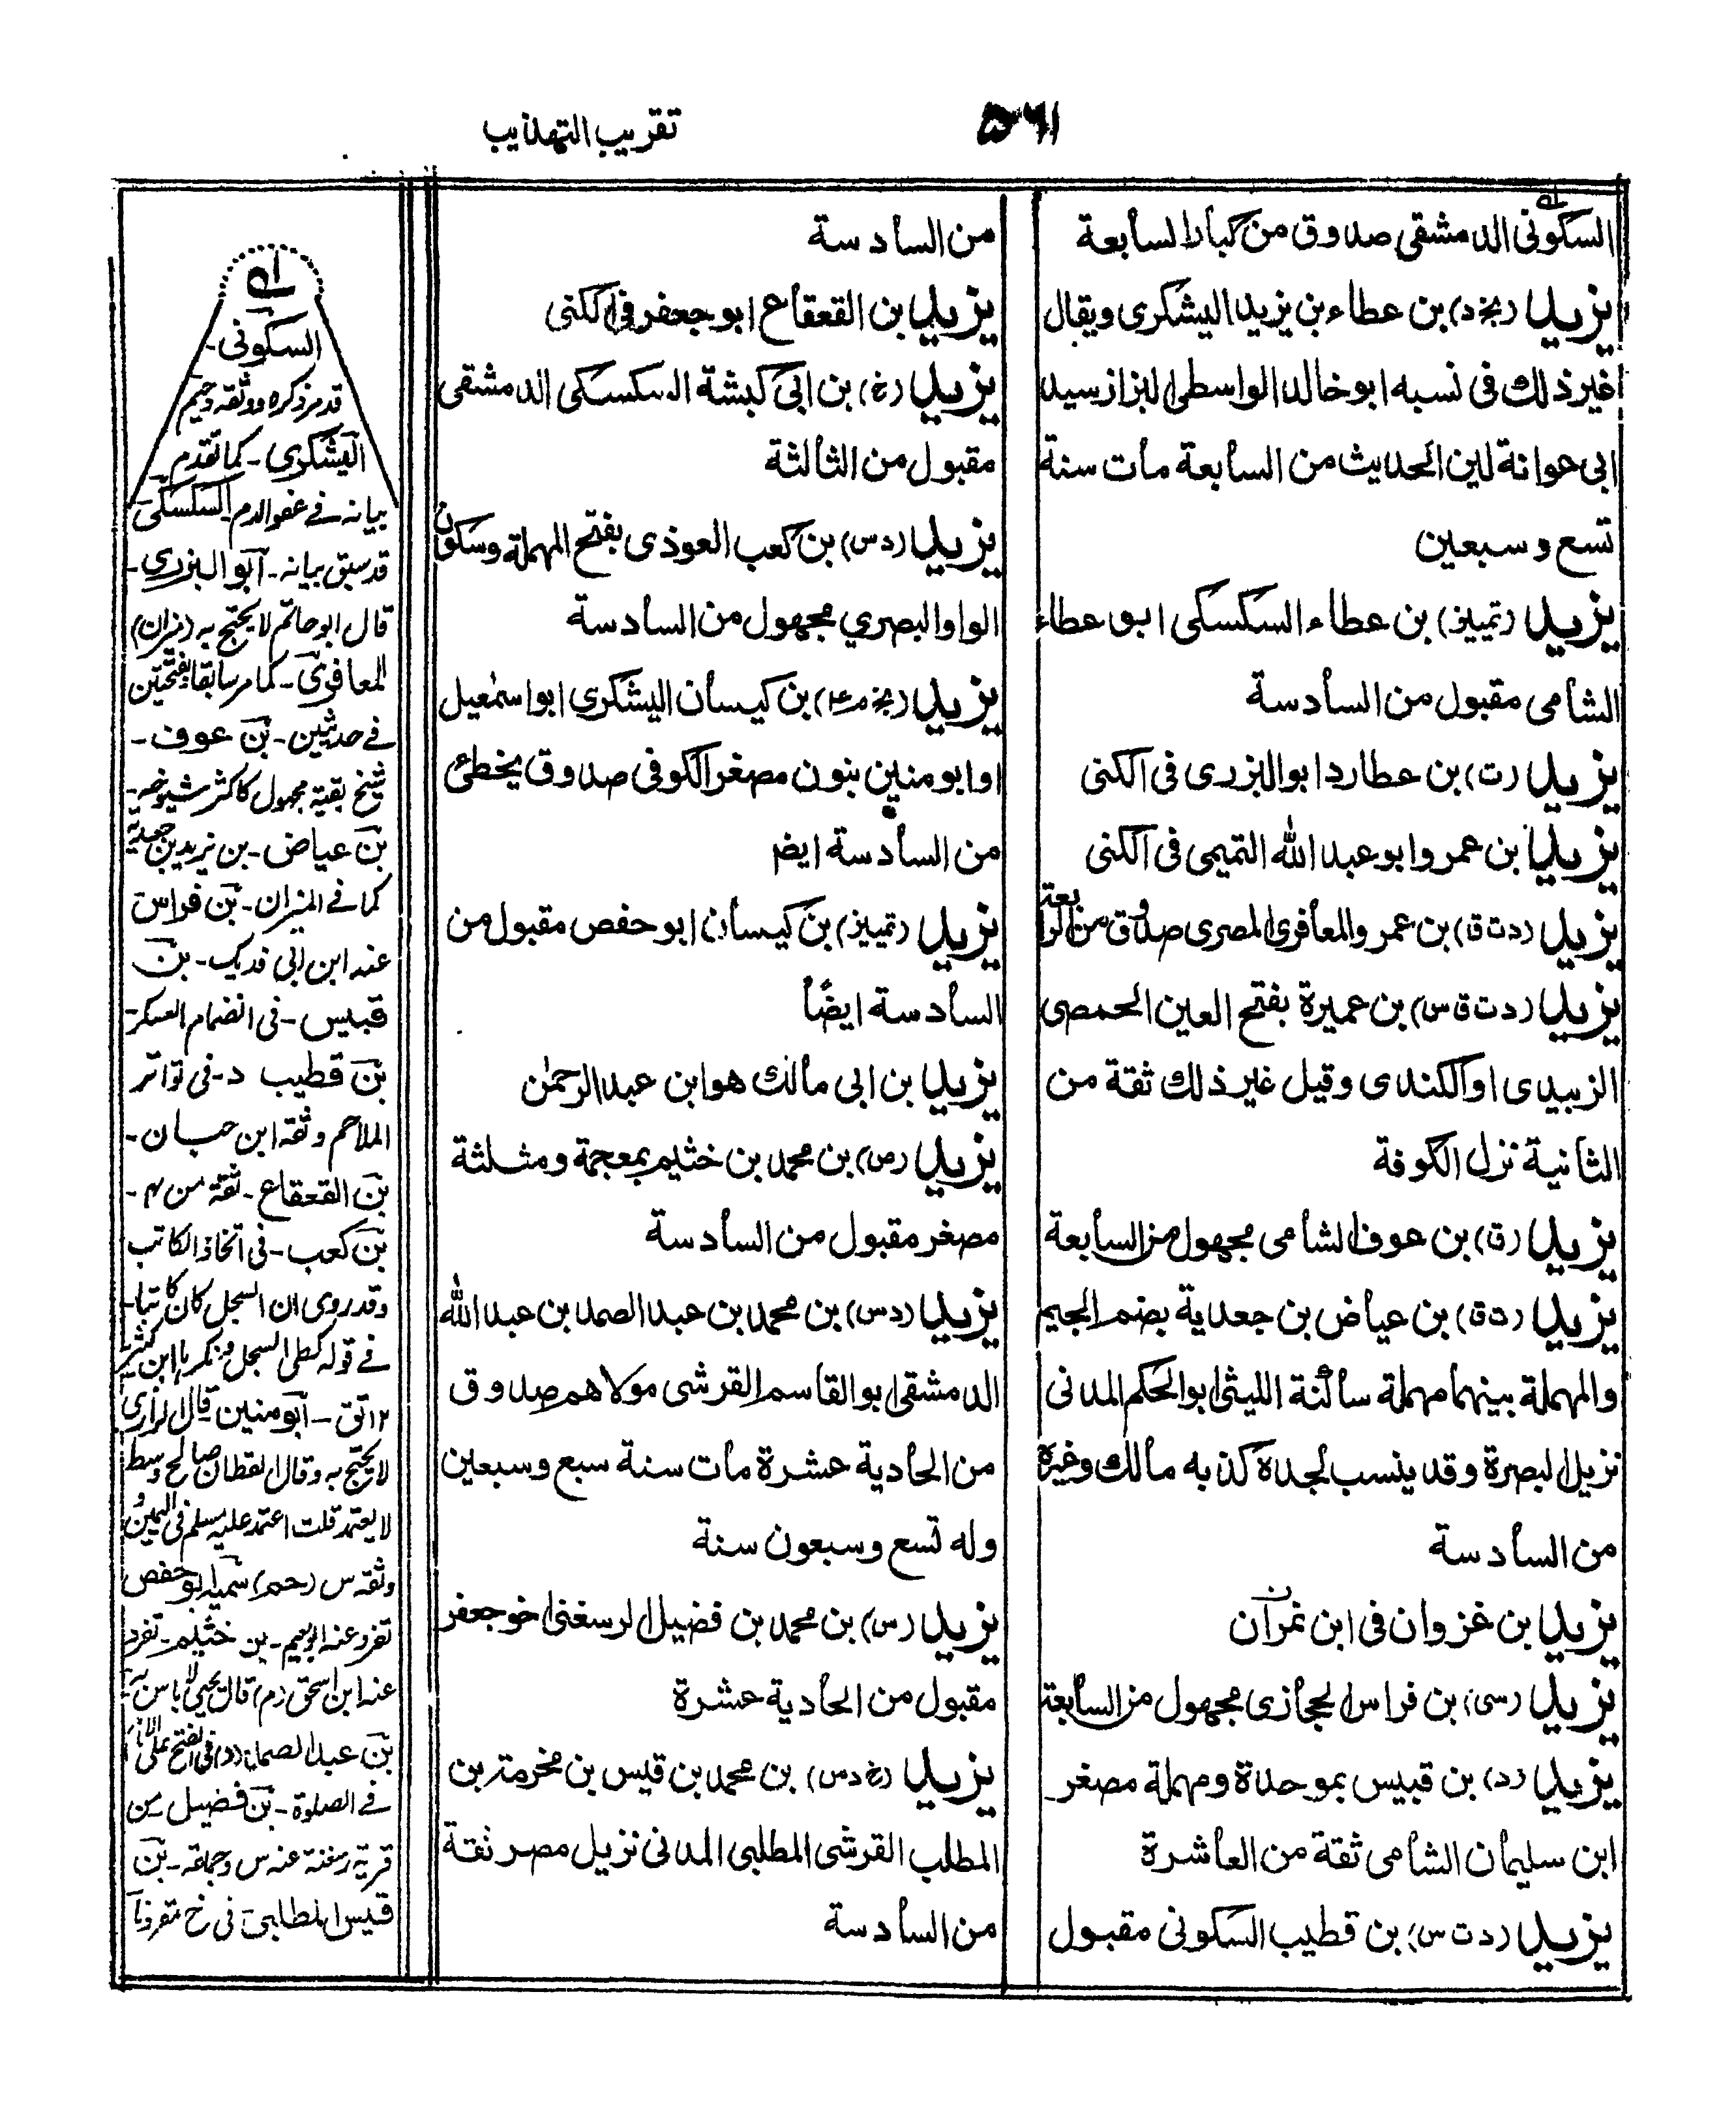 تقريب التهذيب
٥٦١
السكوني الدمشقي صدوق من كبار السابعة
يزيد (بخ د) بن عطاء بن يزيد اليشكري ويقال
غير ذلك في نسبه ابو خالد الواسطي البزاز سيد
ابي عوانة لين الحديث من السابعة مات سنة
تسع وسبعين
يزيد (تمييز) بن عطاء السكسكي ابو عطاء
الشامي مقبول من السادسة
يزيد (ت) بن عطارد ابو البزرى في الكنى
يزيد بن عمرو ابو عبد الله التميمي في الكنى
يزيد (د ت ق) بن عمرو المعافري المصري صدوق من الرابعة
يزيد (د ت ق س) بن عميرة بفتح العين الحمصي
الزبيدى او الكندى وقيل غير ذلك ثقة من
الثانية نزل الكوفة
يزيد (ق) بن عوف الشامي مجهول من السابعة
يزيد (ت ق) بن عياض بن جعدية بضم الجيم
والمهملة بينهما مهملة ساكنة الليثي ابو الحكم المدني
نزيل البصرة وقد ينسب لجده كذبه مالك وغيره
من السادسة
يزيد بن غزوان في ابن نمران
يزيد (سى) بن فراس الحجازى مجهول من السابعة
يزيد (د) بن قبيس بموحدة ومهملة مصغر
ابن سليمان الشامي ثقة من العاشرة
يزيد (د ت س) بن قطيب السكوني مقبول
من السادسة
يزيد بن القعقاع ابو جعفر في الكنى
يزيد (خ) بن ابي كبشة السكسكي الدمشقي
مقبول من الثالثة
يزيد (د س) بن كعب العوذى بفتح المهملة وسكون
الواو البصري مجهول من السادسة
يزيد (بخ م ٤) بن كيسان اليشكري ابو اسمٰعيل
او ابو منين بنون مصغر الكوفي صدوق يخطئ
من السادسة ايض
يزيد (تمييز) بن كيسان ابو حفص مقبول من
السادسة ايضًا
يزيد بن ابي مالك هو ابن عبد الرحمٰن
يزيد (ص) بن محمد بن خثيم بمعجمة ومثلثة
مصغر مقبول من السادسة
يزيد (د س) بن محمد بن عبد الصمد بن عبد الله
الدمشقي ابو القاسم القرشي مولاهم صدوق
من الحادية عشرة مات سنة سبع وسبعين
وله تسع وسبعون سنة
يزيد (س) بن محمد بن فضيل الرسغني اخو جعفر
مقبول من الحادية عشرة
يزيد (خ د س) بن محمد بن قيس بن مخرمة بن
المطلب القرشي المطلبي المدني نزيل مصر ثقة
من السادسة
السكوني
قد مر ذكره ووثقه دحيم
اليشكري - كما تقدم
بيانه في عفو الدم السكسكي
قد سبق بيانه - ابو البزرى -
قال ابو حاتم لا يحتج به (ميزان)
المعافرى - كما مر سابقا بفتحتين
في حديثين - بن عوف -
شيخ بقية مجهول كاكثر شيوخه -
بن عياض - بن يزيد بن جعدبة
كما في الميزان - بن فراس
عنه ابن ابي فديك - بن
قبيس - في انضمام العسكر
بن قطيب د - في تواتر
الملاحم وثقه ابن حبان -
بن القعقاع - ثقة من ٤ -
بن كعب - في اتخاذ الكاتب
وقد روى ان السجل كان كاتبا -
في قوله كطي السجل ابن كثير
١٢ تق - ابو منين قال الرازى
لا يحتج به وقال القطان صالح وسط
لا يعتمد قلت اعتمد عليه مسلم في اليمين و
وثقه س (حم) سميه ابو حفص
تفرد عنه ابو نعيم - بن خثيم - تفرد
عنه ابن اسحق (م) قال يحيى لا باس به
بن عبد الصمد (د) في الفتح على الامام
في الصلوة - بن فضيل - من
قرية رسغنة عنه س وجماعة - بن
قيس المطلبي - في خ متفردا